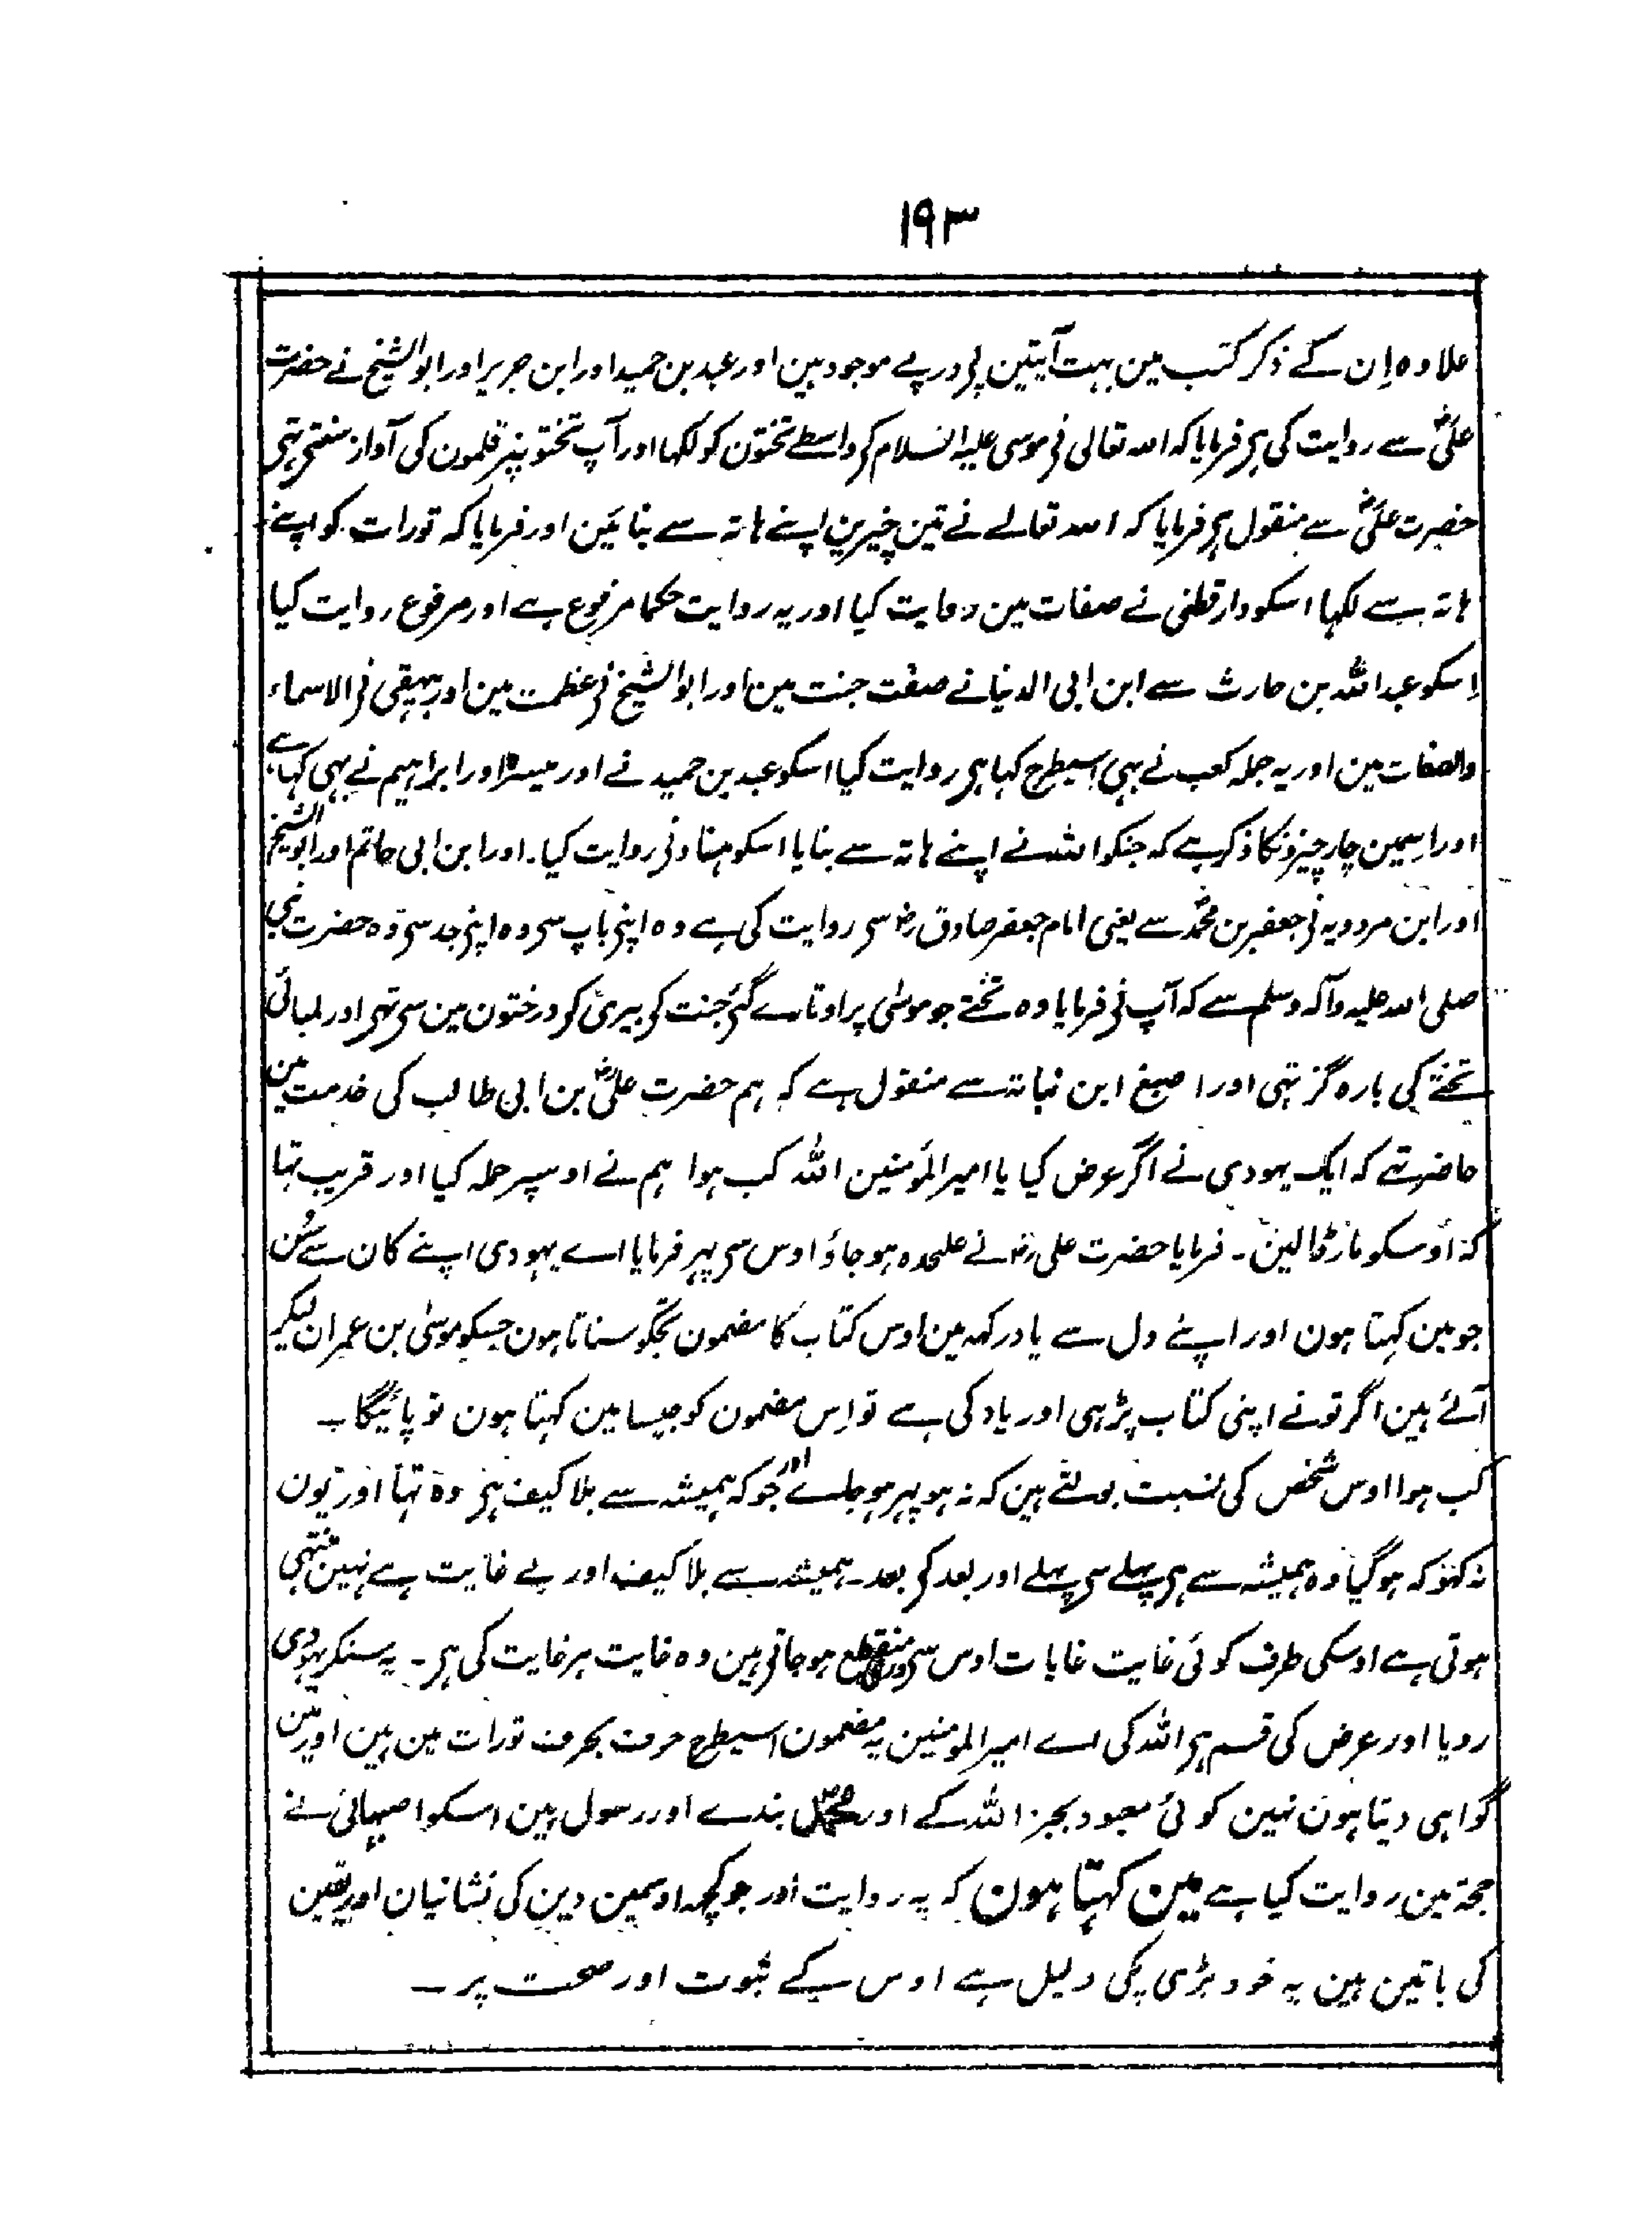 ۱۹۳
علاوہ اِن کے ذکر کتب مین بہت آیتین پی درپے موجود ہین اور عبد بن حمید اور ابن جریر اور ابو الشیخ نے حضرت
علیؓ سے روایت کی ہی فرمایا کہ اللہ تعالی نی موسی علیہ السلام کی واسطے تختون کو لکہا اور آپ تختونپر قلمون کی آواز سنتی تہی
حضرت علیؓ سے منقول ہی فرمایا کہ اللہ تعالے نے تین چیزین اپنے ہاتہ سے بنائین اور فرمایا کہ تورات کو اپنے
ہاتہ سے لکہا اسکو دارقطنی نے صفات مین روایت کیا اور یہ روایت حکما مرفوع ہے اور مرفوع روایت کیا
اِسکو عبد اللہ بن حارث سے ابن ابی الدنیا نے صفت جنت مین اور ابو الشیخ نی عظمت مین اور بیہقی نی الاسماء
والصفات مین اور یہ جملہ کعب نے بہی اسیطرح کہا ہی روایت کیا اسکو عبد بن حمید نے اور میسرہ اور ابراہیم نے یہی کہا ہے
اور اسمین چار چیزونکا ذکر ہے کہ جنکو اللہ نے اپنے ہاتہ سے بنایا اسکو ہناد نی روایت کیا۔ اور ابن ابی حاتم اور ابو الشیخ
اور ابن مردویہ نی جعفر بن محمدؓ سے یعنی امام جعفر صادق رضہ سی روایت کی ہے وہ اپنی باپ سی وہ اپنی جد سی وہ حضرت نبی
صلی اللہ علیہ وآلہ وسلم سے کہ آپ نی فرمایا وہ تختے جو موسٰی پر اوتارے گئی جنت کی بیری کی درختون مین سی تہی اور لمبائی
تختے کی بارہ گز تہی اور اصبغ ابن نباتہ سے منقول ہے کہ ہم حضرت علیؓ بن ابی طالب کی خدمت مین
حاضر تہے کہ ایک یہودی نے آکر عرض کیا یا امیر المؤمنین اللہ کب ہوا ہم نے اوسپر حملہ کیا اور قریب تہا
کہ اوسکو مار ڈالین ۔ فرمایا حضرت علی رضہ نے علیحدہ ہو جاؤ اوس سی پہر فرمایا اے یہودی اپنے کان سے سُن
جو مین کہتا ہون اور اپنے دل سے یاد رکہہ مین اوس کتاب کا مضمون تجکو سناتا ہون جسکو موسٰی بن عمران لیکر
آئے ہین اگر تونے اپنی کتاب پڑہی اور یاد کی ہے تو اِس مضمون کو جیسا مین کہتا ہون تو پائیگا ۔
کب ہوا اوس شخص کی نسبت بولتے ہین کہ نہ ہو پہر ہو جاے اور جو کہ ہمیشہ سے بلا کیف ہی وہ تہا اور یون
نہ کہو کہ ہوگیا وہ ہمیشہ سے ہی پہلے سی پہلے اور بعد کی بعد۔ ہمیشہ سے بلا کیف اور بے غایت ہے نہین منتہی
ہوتی ہے اوسکی طرف کوئی غایت غایات اوس سی ورے منقطع ہو جاتی ہین وہ غایت ہر غایت کی ہی ۔ یہ سنکر یہودی
رویا اور عرض کی قسم ہی اللہ کی اے امیر المومنین یہ مضمون اسیطرح حرف بحرف تورات مین ہین اور مین
گواہی دیتا ہون نہین کوئی معبود بجز اللہ کے اور محمدؐ بندے اور رسول ہین اسکو اصبہانی نے
حجۃ مین روایت کیا ہے مین کہتا ہون کہ یہ روایت اور جو کچہ اوسمین دین کی نشانیان اور یقین
کی باتین ہین یہ خود بڑی پکی دلیل ہے اوس کے ثبوت اور صحت پر ــ